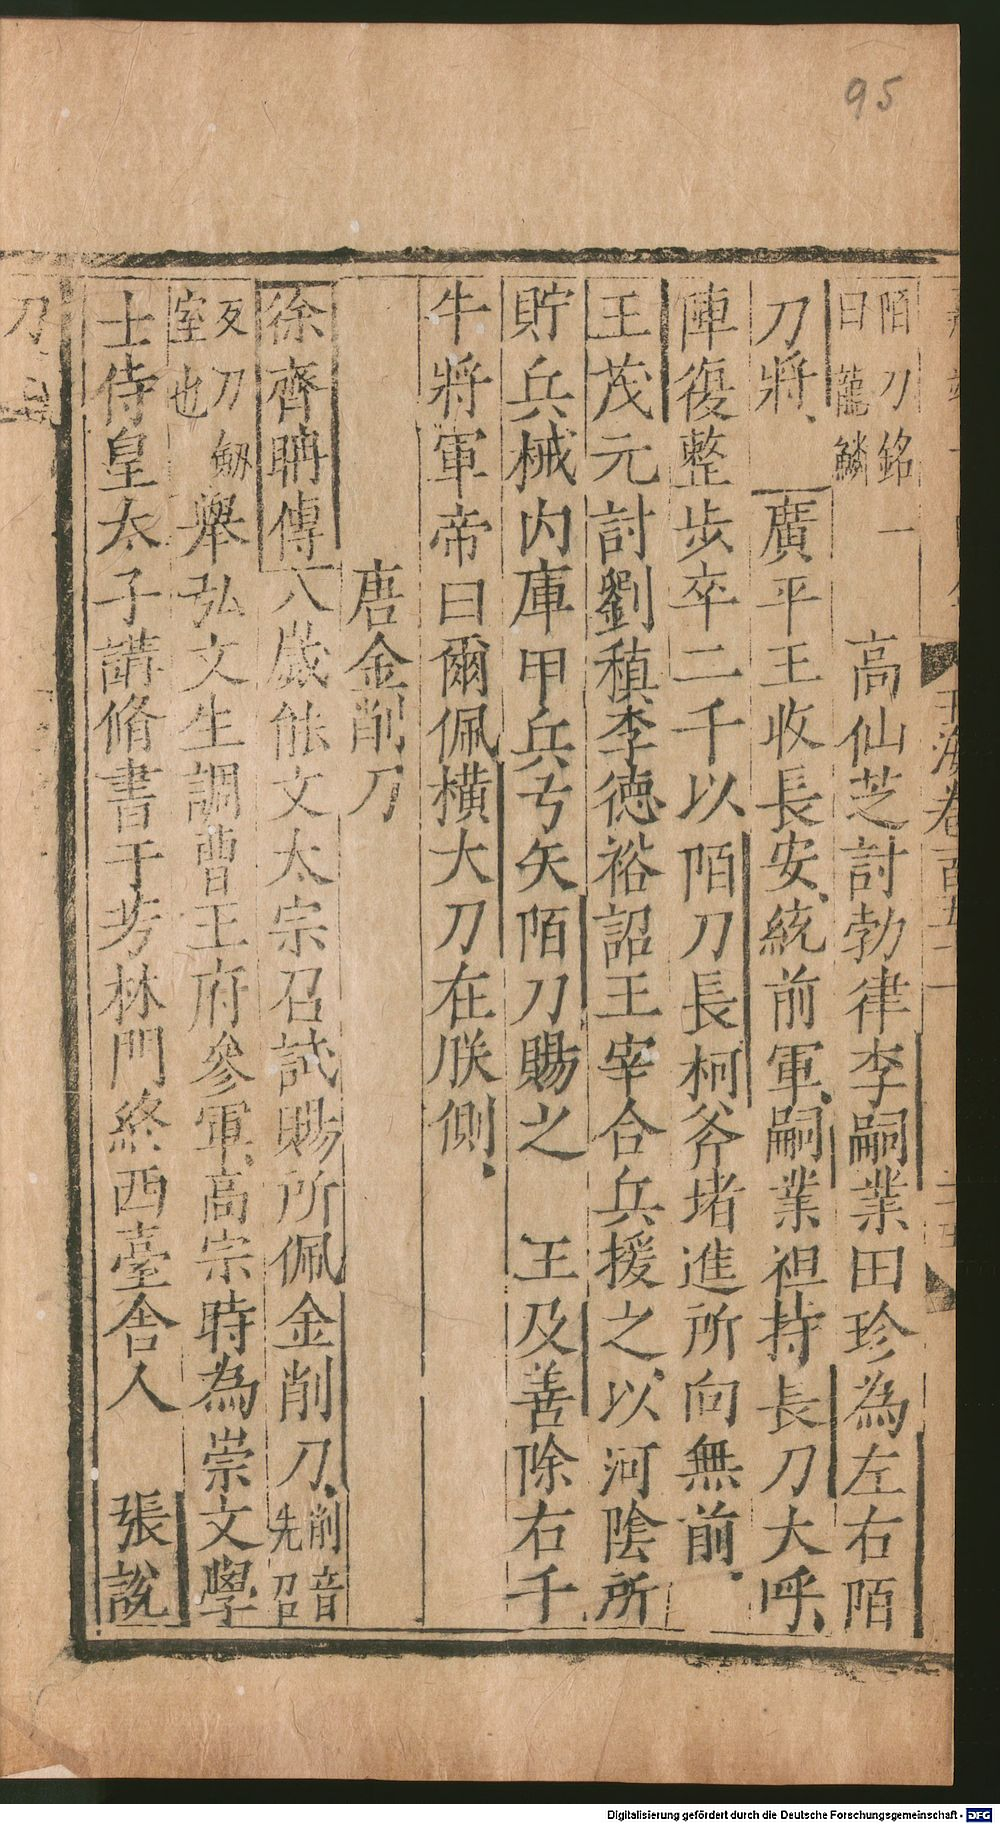 95
玉海卷百五十一
陌刀銘一
曰龍鱗
高仙芝討勃律李嗣業田珍為左右陌
刀將廣平王收長安統前軍嗣業袒持長刀大呼
陣復整步卒二千以陌刀長柯斧堵進所向無前
王茂元討劉稹李德裕詔王宰合兵援之以河陰所
貯兵械內庫甲兵弓矢陌刀賜之 王及善除右千
牛將軍帝曰爾佩橫大刀在朕側
唐金削刀
徐齊聃傳八歲能文太宗召試賜所佩金削刀
削音
先召
反刀劒
室也
舉弘文生調曹王府參軍高宗時為崇文學
士侍皇太子講脩書于芳林門終西臺舍人 張說
刀
Digitalisierung gefördert durch die Deutsche Forschungsgemeinschaft - DFG